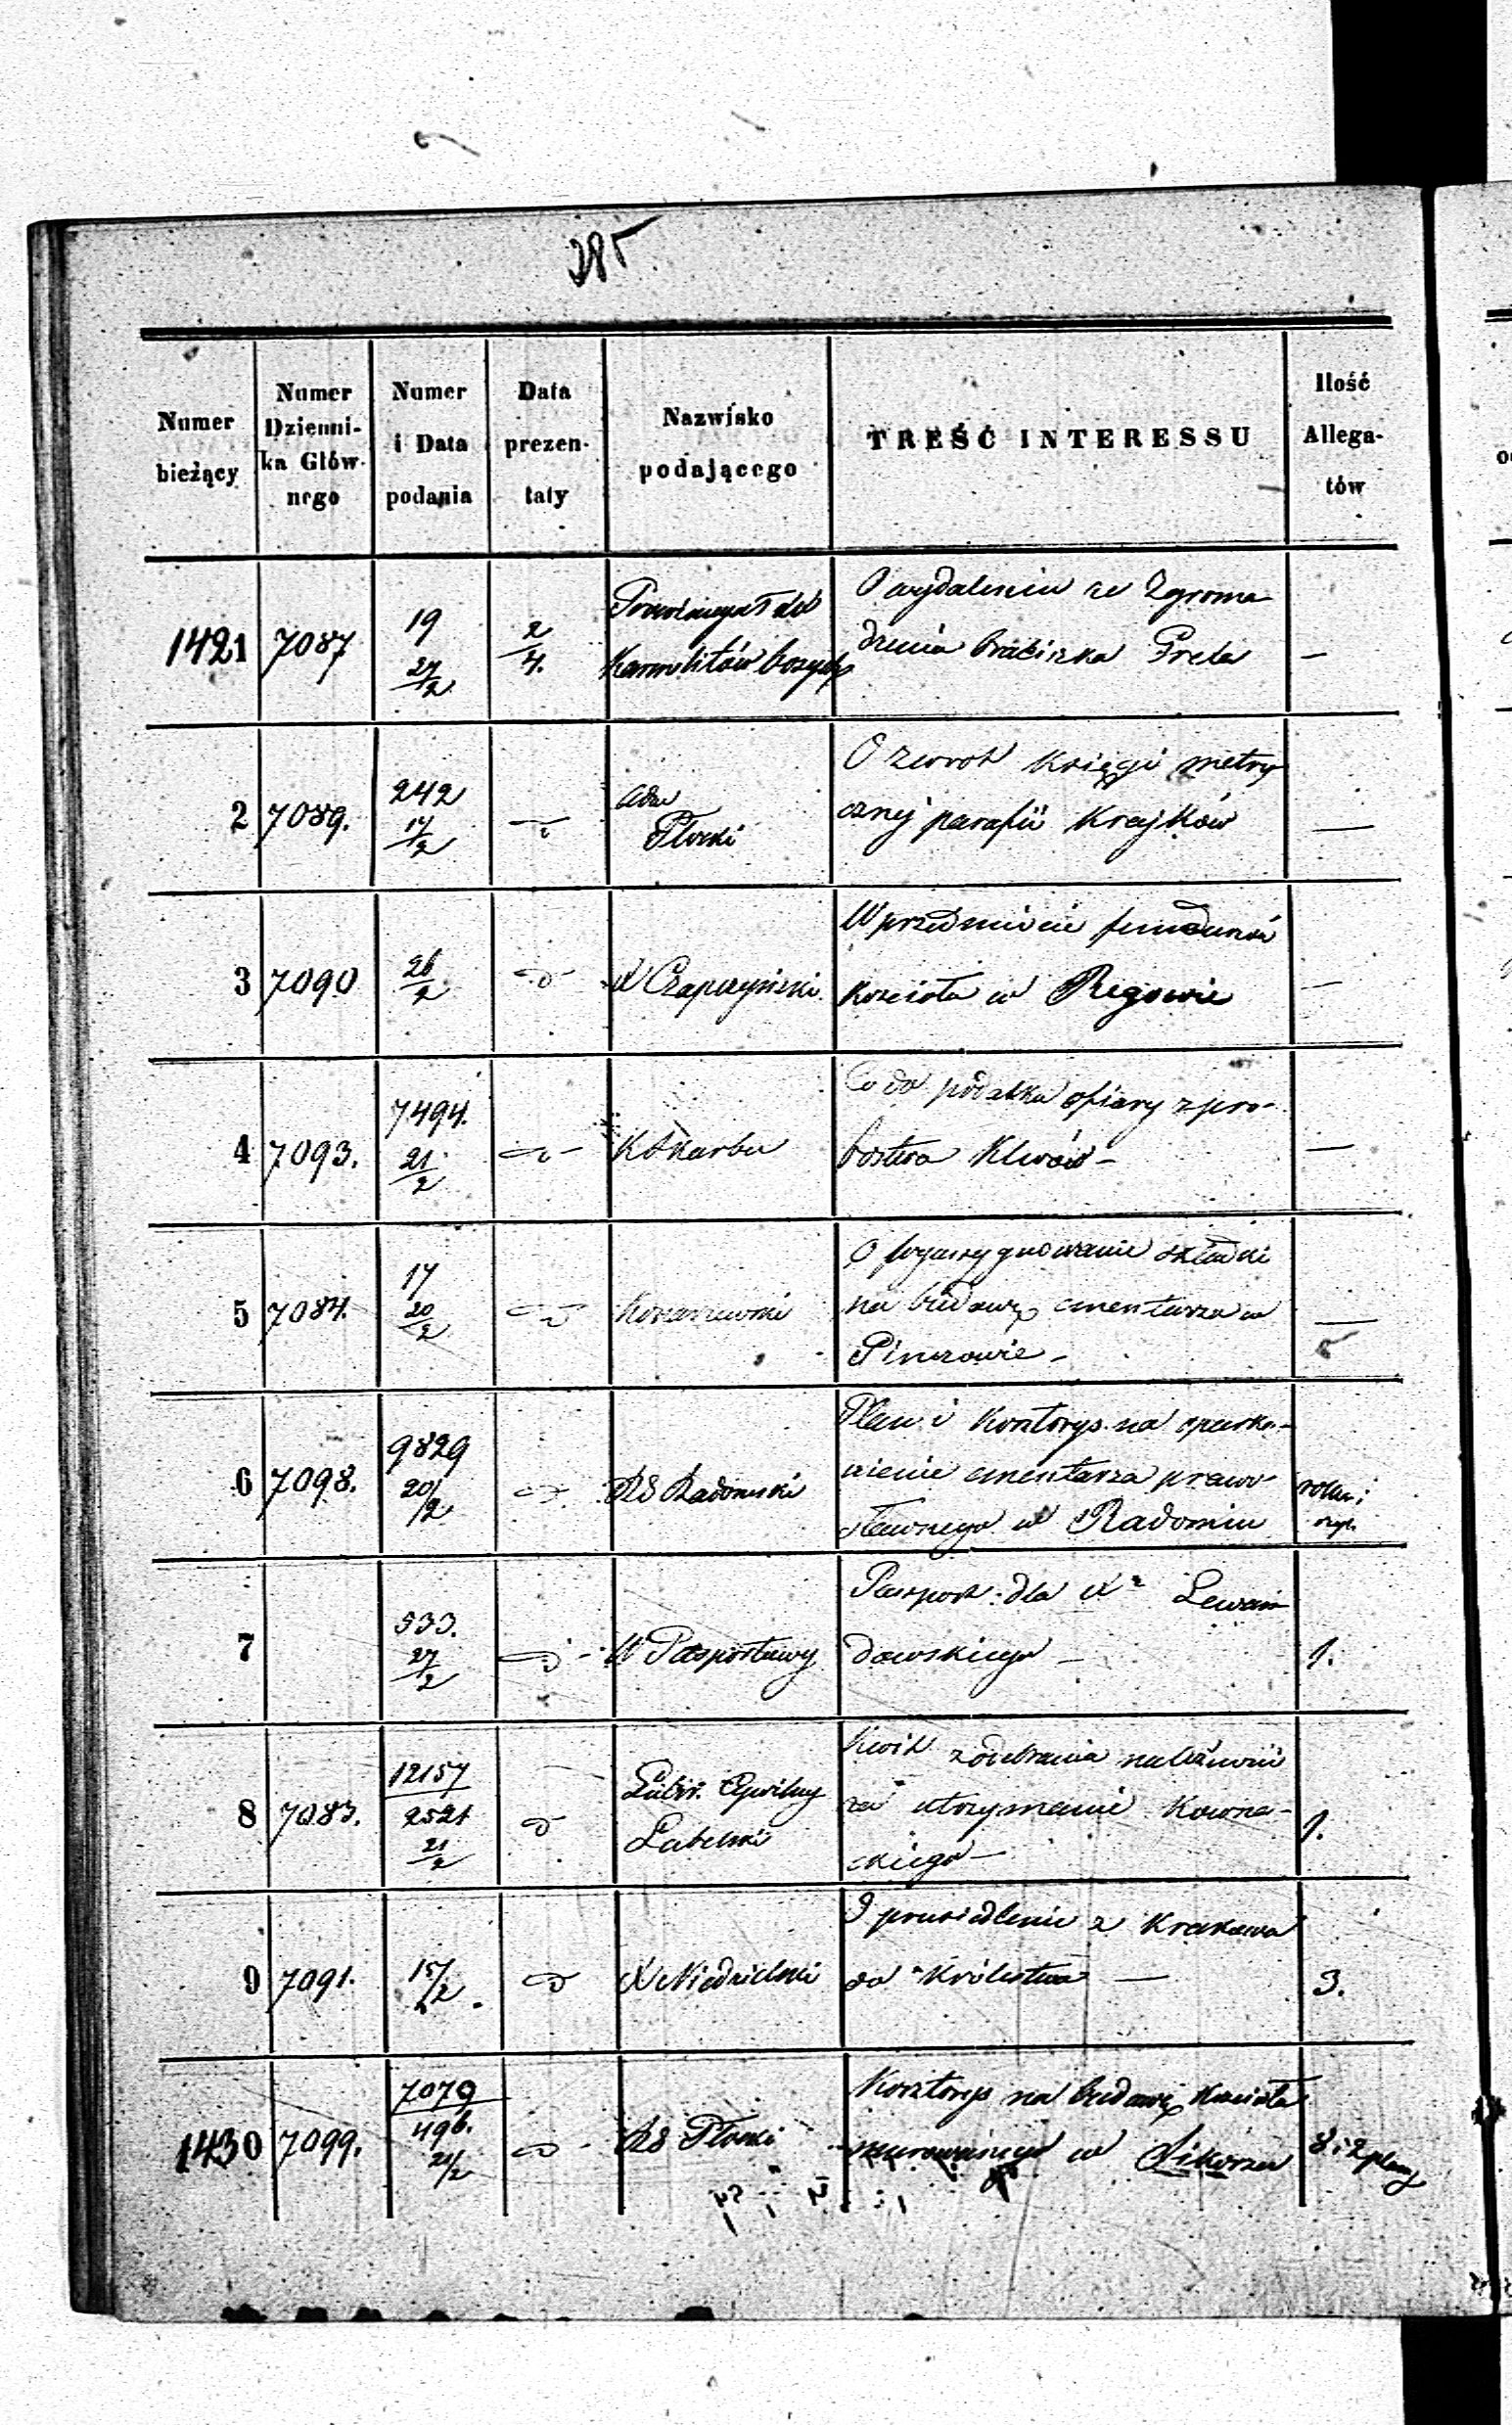 285
Numer bieżący
Numer Dzienni- ka Głów- nego
Numer i Data podania
Data prezen- taty
Nazwisko podającego
TREŚĆ INTERESSU
Ilość Allega- tów
1421 7087 19 27/2 2/4. Karmelitów bosych
O wydaleniu ze Zgroma
dzenia braciszka Preta —
2 7089. 242 17/2 Płocki
O zwrot księgi metry
cznej parafii Krajków —
3 7090 26/2 X Czapczyński
W przedmiocie
kościoła w Regowie —
4 7093. 7494. 21/2 K Skarbu
Co do podatku ofiary z pro-
bostwa Klwów — —
5 7084. 17 20/2
O wyassygnowanie składki
na budowę cmentarza w
Pinczowie — —
6 7098. 9829 20/2 RG Radomski
Plan i Kosztorys na oparka-
nienie cmentarza prawo-
sławnego w Radomiu
7 533. 27/2 W Pasportowy
Pasport dla Xa Lewan
dowskiego — 1.
8 7083. 12157 2521 21/2 Cywilny Lubelski
Kwit z odebrania należności
za utrzymanie Kowna-
ckiego — 1.
9 7091. 15/2 X Niedzielski
O przesiedlenie z Krakowa
do Królestwa — 3.
1430 7099. 7079 496. 21/2 RG Płocki
Kosztorys na budowę Kościoła
murowanego w Sikorzu 8 i 2 plany